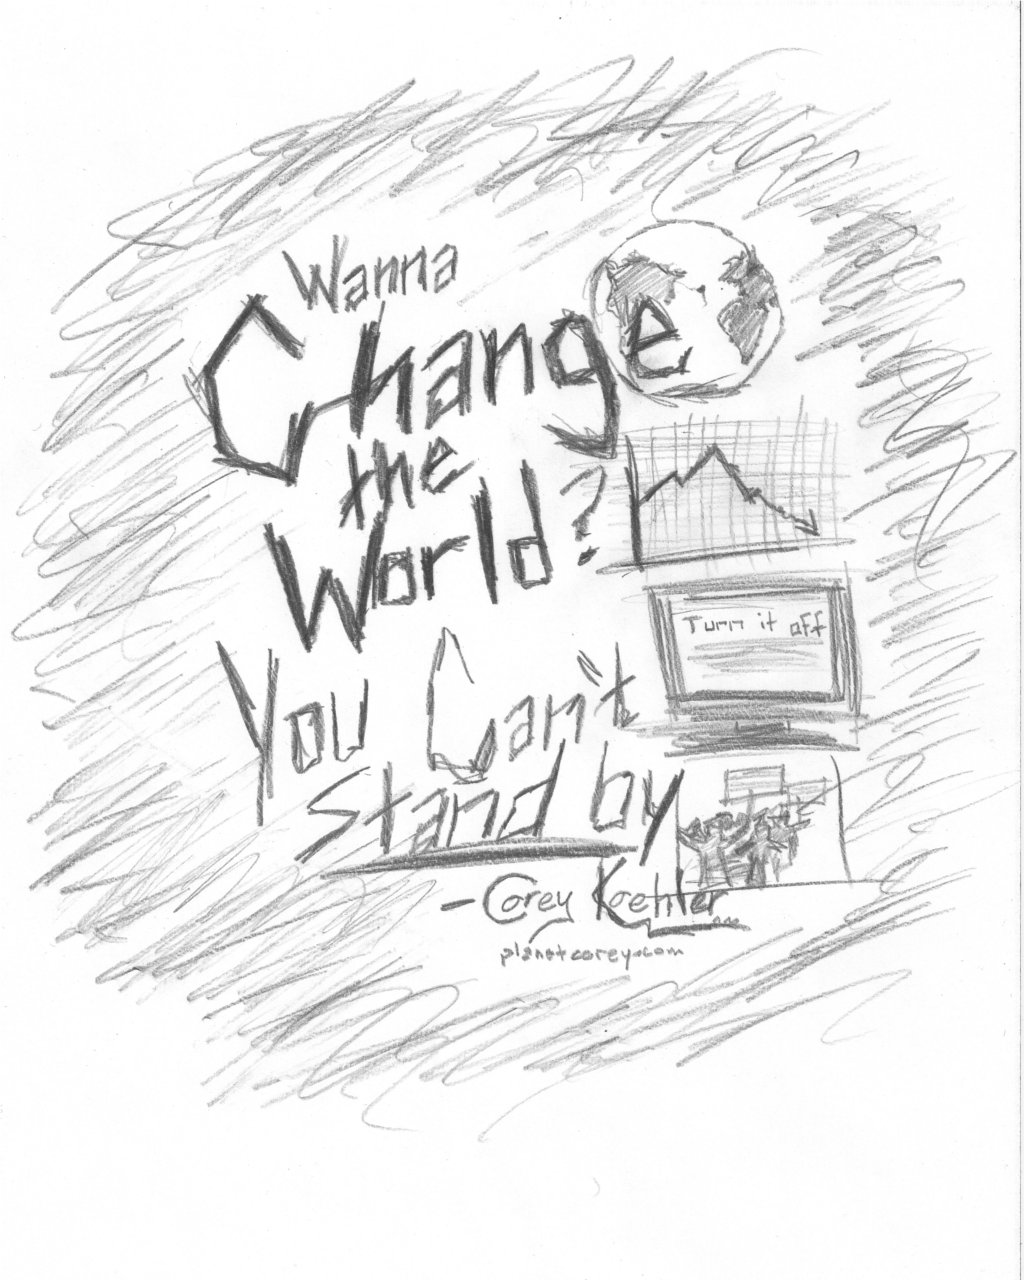 Wanna
Change
the
World?
Turn it off
You Can't
Stand by
- Corey Koehler
planetcorey.com